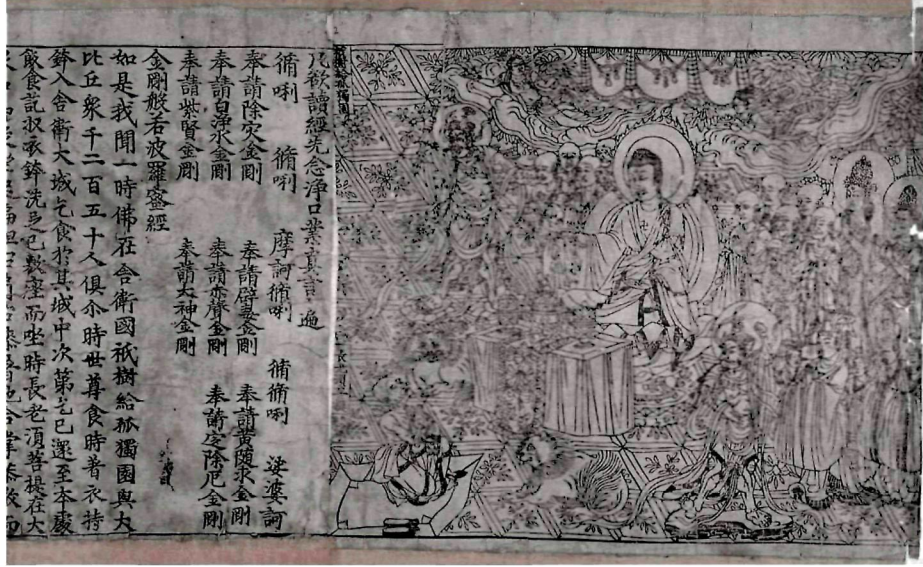 祇樹給孤獨園
凡欲讀經先念淨口業真言一遍
脩唎 脩唎 摩訶脩唎 脩脩唎 娑婆訶
奉請除灾金剛 奉請辟毒金剛 奉請黃随求金剛
奉請白淨水金剛 奉請赤聲金剛 奉請定除厄金剛
奉請紫賢金剛 奉請大神金剛
金剛般若波羅蜜經
如是我聞一時佛在舍衛國祇樹給孤獨園與大
比丘衆千二百五十人俱尒時世尊食時著衣持
鉢入舍衛大城乞食於其城中次第乞已還至本處
飯食訖收衣鉢洗足已敷座而坐時長老須菩提在大